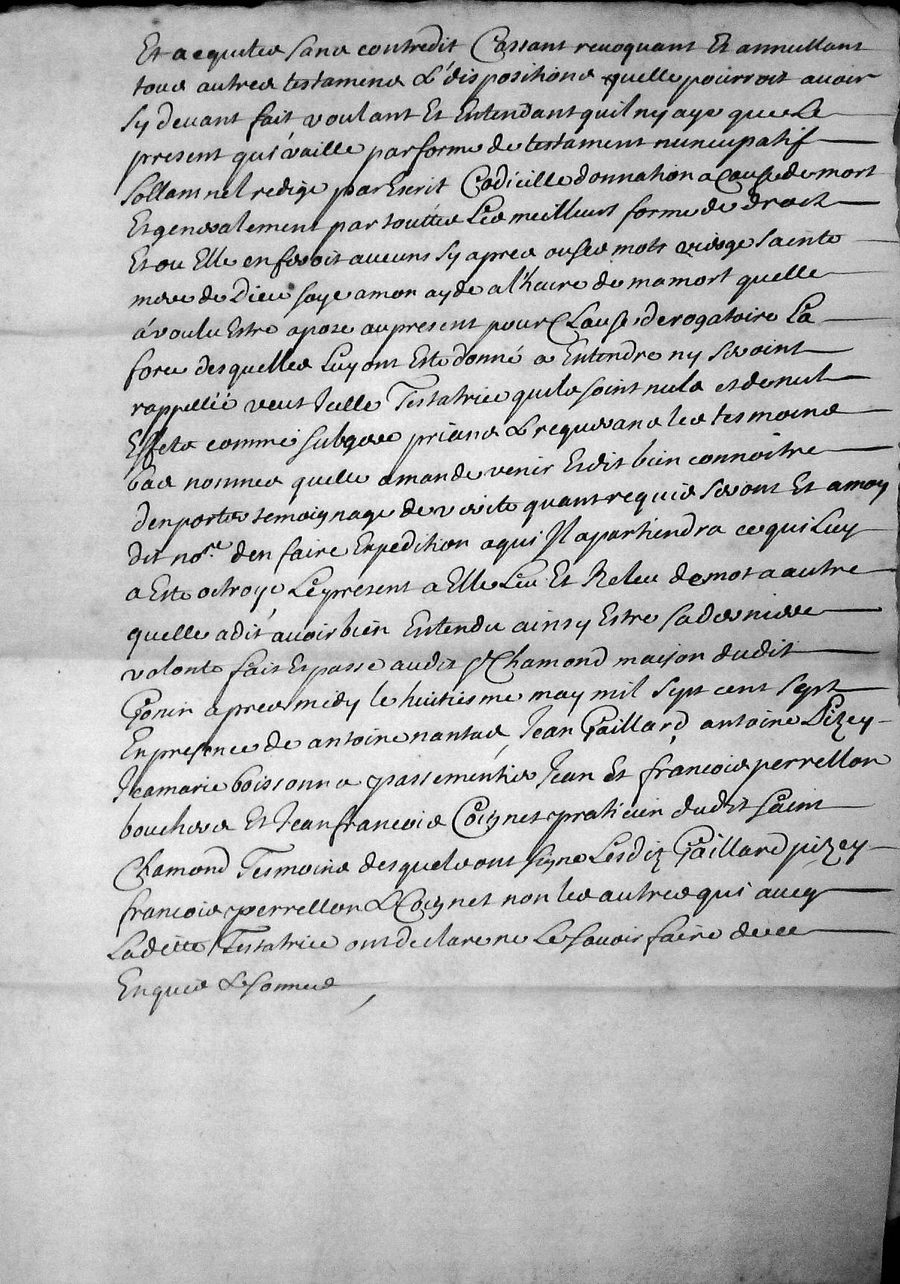 Et acquitter sans contredit Cassant revoquant Et annullant
tous autres testamens & dispositions quelle pourroit avoir
sy devant fait voulant Et Entendant quil ny aye que Le
present qui vaille par forme de testament nuncupatif
sollamnel redigé par Escrit Codicille donnation a Cause de mort
Et generalement par touttes Les meilleurs forme de droict
Et ou Elle en feroit aucuns sy apres ou ses mots vierge Sainte
mere de Dieu soye a mon ayde a l'heure de ma mort quelle
à voulu Estre aposé au present pour Clause derogatoire La
force desquelles Luy ont Esté donné a Entendre ny seroint
rappellée veut Icelle Testatrice quils soint nuls et de nul
Effets comme subgeré priant & requerant les tesmoins
bas nommes quelle a mandé venir Et dit bien connoitre
den porter temoignage de verité quant requis seront Et a moy
dit no.re den faire Expedition a qui Il apartiendra ce qui Luy
a Esté octroyé Le present a Elle Leu Et Releu de mot a autre
quelle a dit avoir bien Entendu ainsy Estre sa derniere
volonté fait Et passé audit St Chamond maison dudit
Gonin apres midy le huitiesme may mil sept cent sept
En presence de antoine nantas, Jean Gaillard antoine Pizey
Jeamarie boissonna passementier Jean Et françois perrellon
bouchers Et Jean francois Coignet praticien dudit Saint
Chamond Tesmoins desquels ont signe Lesdiz Gaillard pizey
francois perrellon & Coignet non les autres qui avec
Laditte Testatrice ont declaré ne Le savoir faire de ce
Enquis & sommes